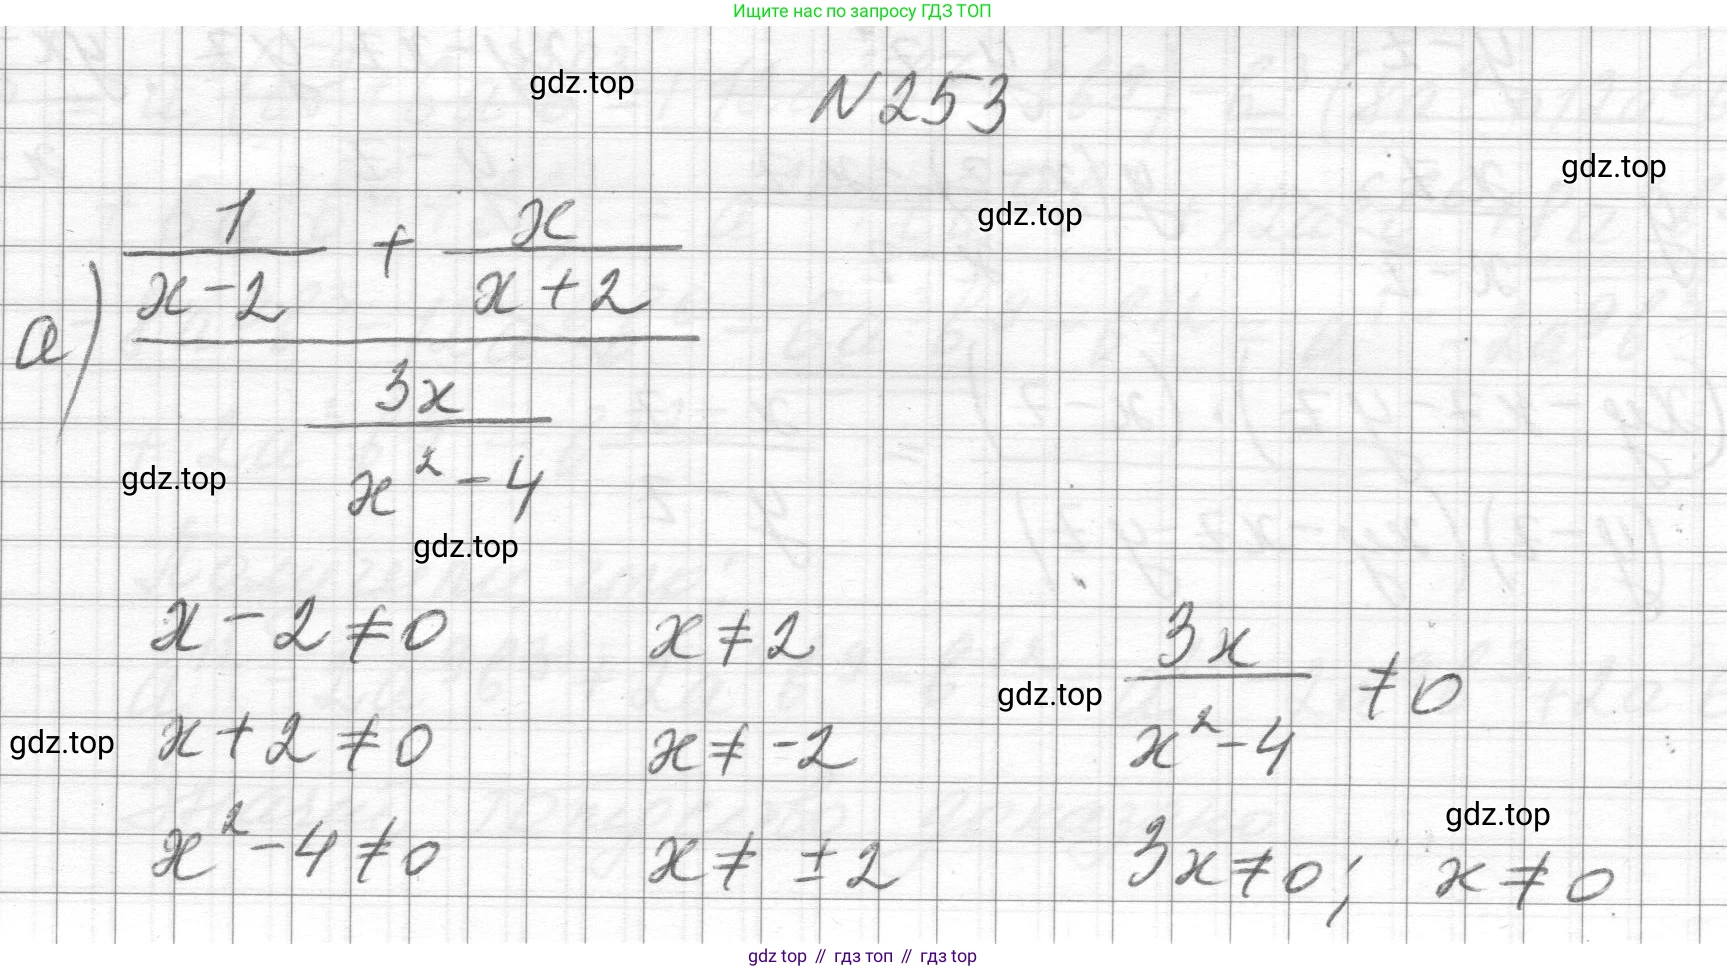 Ищите нас по запросу ГДЗ ТОП
gdz.top
N 253
gdz.top
gdz.top
а) (1/(x-2) + x/(x+2)) / (3x/(x²-4))
gdz.top
gdz.top
x - 2 ≠ 0 x ≠ 2 3x/(x²-4) ≠ 0
gdz.top
gdz.top
x + 2 ≠ 0 x ≠ -2
gdz.top
x² - 4 ≠ 0 x ≠ ±2 3x ≠ 0; x ≠ 0
gdz top // гдз топ // gdz top